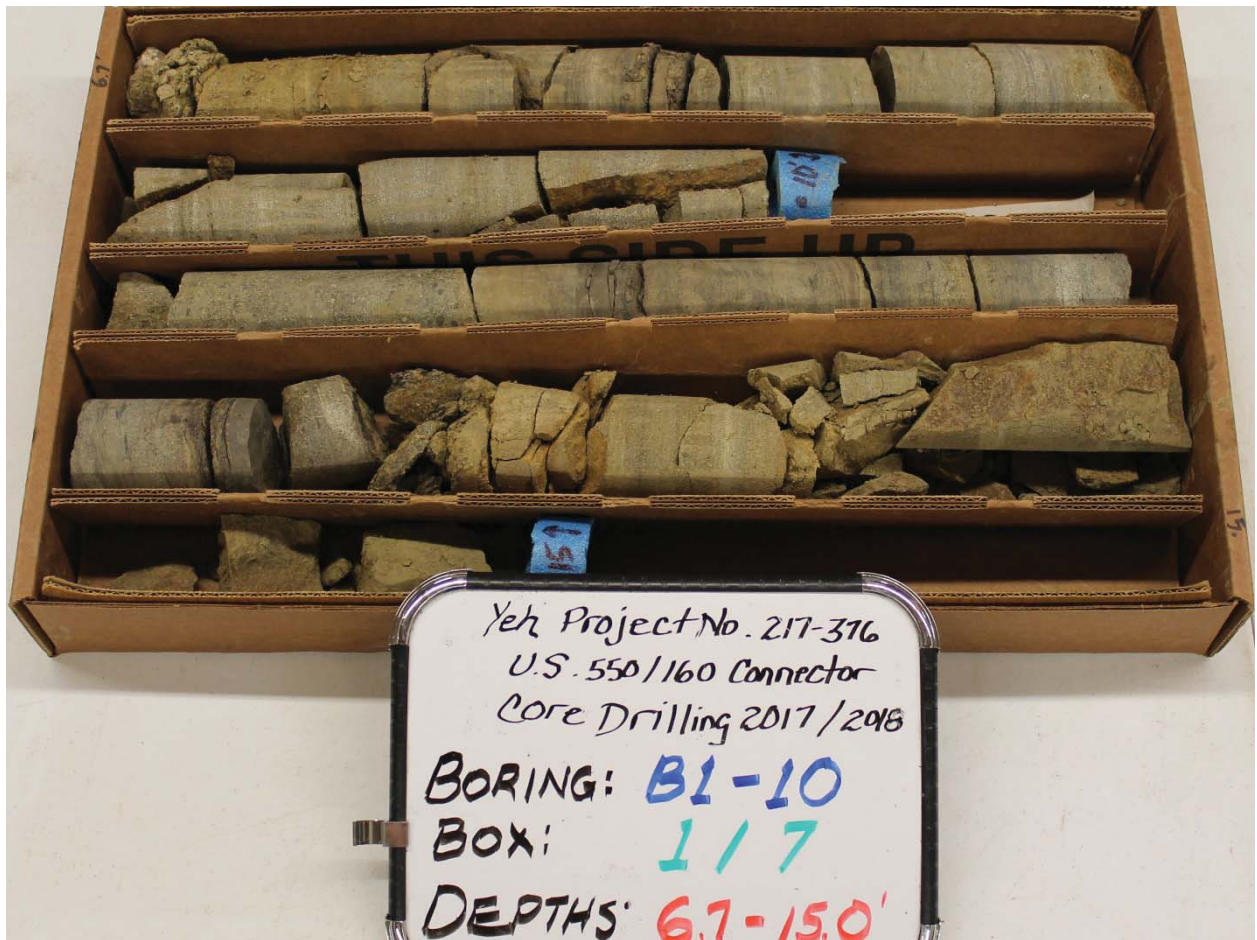 6.7
10'
THIS SIDE UP
15↑
15.
Yeh Project No. 217-376
U.S. 550/160 Connector
Core Drilling 2017/2018
BORING: B1-10
BOX: 1/7
DEPTHS: 6.7-15.0'